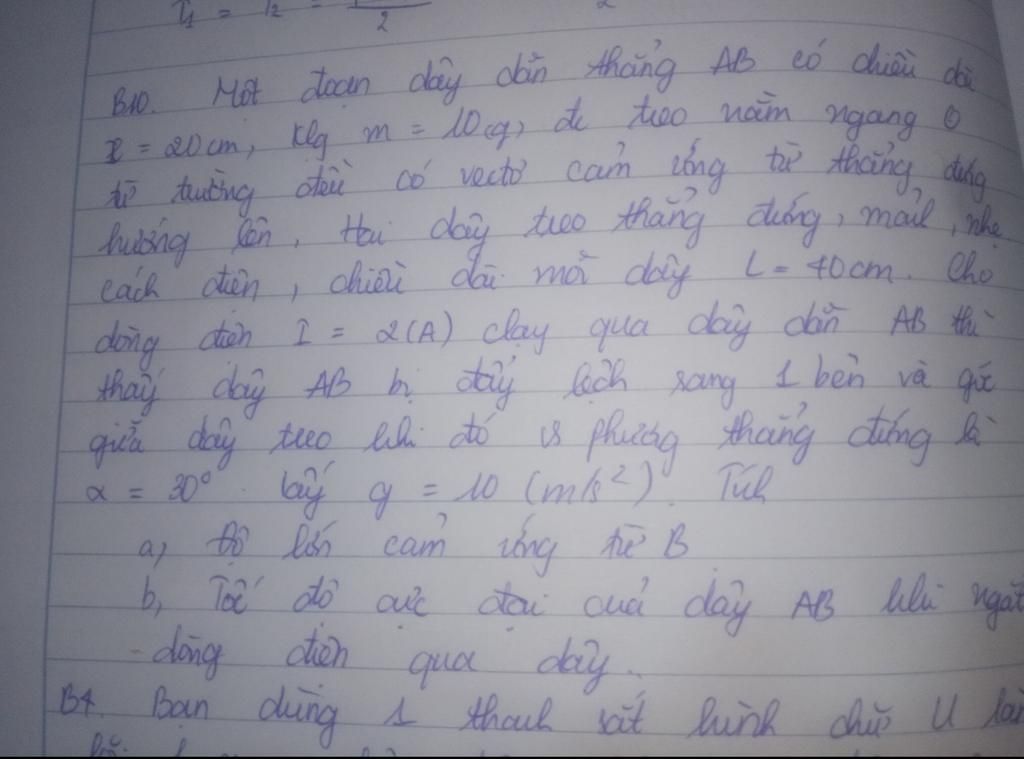 B10. Một đoạn dây dẫn thẳng AB có chiều dà
l = 20cm, klg m = 10(g), đc treo nằm ngang ở
từ trường đều có vectơ cảm ứng từ thẳng đứng
hướng lên, Hai dây treo thẳng đứng, mảnh, nhẹ
cách điện, chiều dài mỗi dây L = 40cm. Cho
dòng điện I = 2(A) chạy qua dây dẫn AB thì
thấy dây AB bị đẩy lệch sang 1 bên và góc
giữa dây treo khi đó vs phương thẳng đứng là
α = 30°. lấy g = 10 (m/s²). Tính
a, Độ lớn cảm ứng từ B
b, Tốc độ cực đại của dây AB khi ngắt
dòng điện qua dây.
Bạn dùng 1 thanh sắt hình chữ U